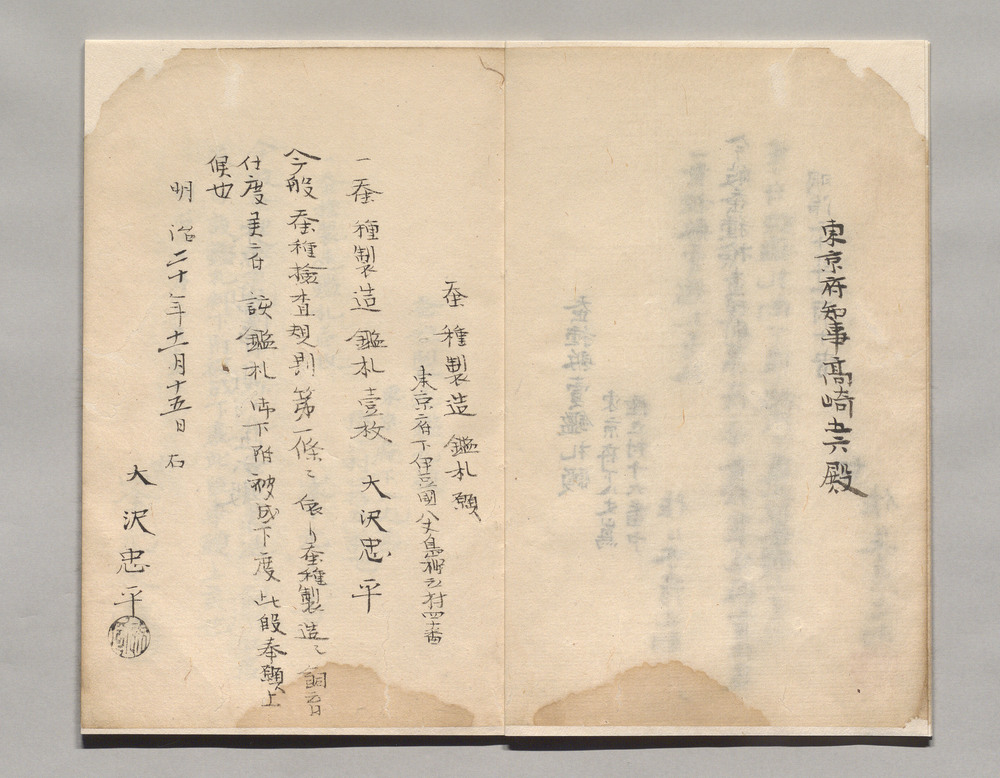 東京府知事高崎五六殿
蚕種製造鑑札願
東京府下伊豆國八丈島 村四十番
一蚕種製造鑑札壹枚 大沢忠平
今般蚕種検査規則第一條ニ依り蚕種製造
仕度 ニ付該鑑札御下附被成下度此段奉願上
候也
明治二十年十一月十五日 右
大沢忠平